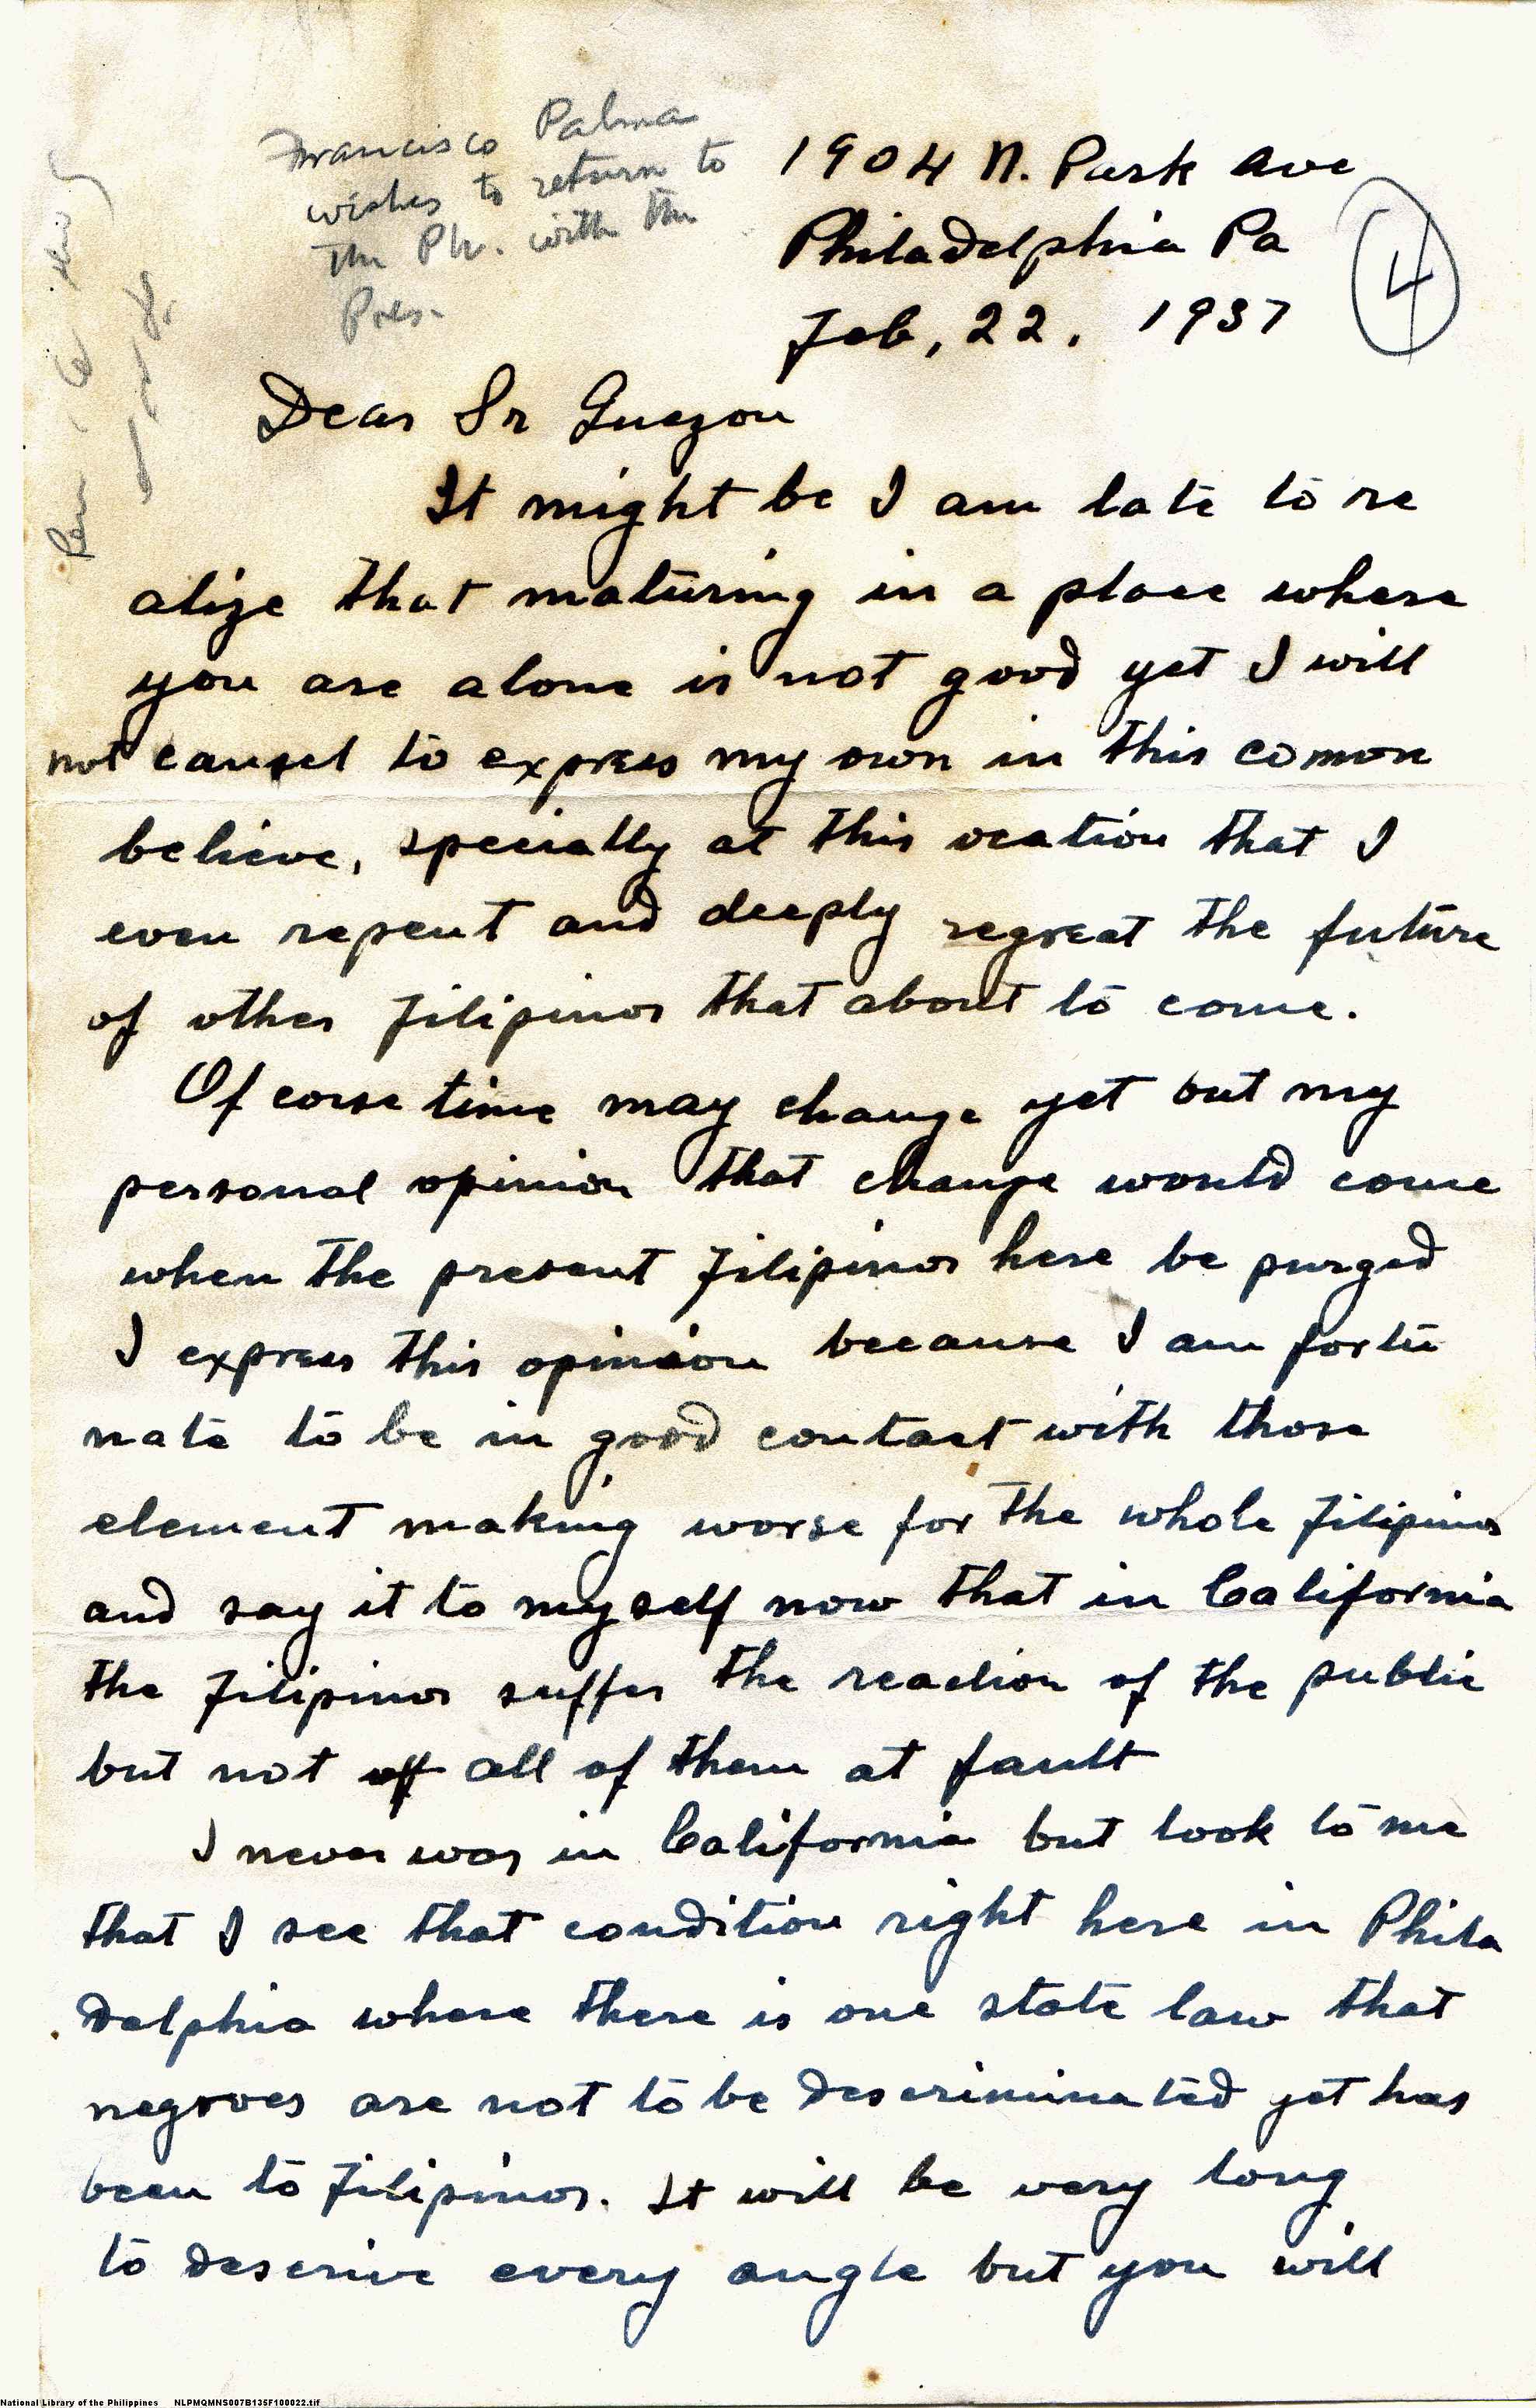 Francisco Palma
wishes to return to
the Ph. with the
Pres.
1904 N. Park Ave
Philadelphia Pa
Feb, 22. 1937
4
Dear Sr Quezon
It might be I am late to re
alize that maturing in a place where
you are alone is not good yet I will
not cansel to express my own in this comon
believe, specially at this ocation that I
even repent and deeply regreat the future
of other Filipinos that about to come.
Of corse time may change yet but my
personal opinion that change would come
when the present Filipinos here be purged
I express this opinion because I am fortu
nate to be in good contact with those
element making worse for the whole Filipinos
and say it to myself now that in California
the Filipinos suffer the reaction of the public
but not all of them at fault
I never was in California but look to me
that I see that condition right here in Phila
delphia where there is one state law that
negroes are not to be descriminated yet has
been to Filipinos. It will be very long
to descrive every angle but you will
National Library of the Philippines NLPMQMNS007B135F100022.tif